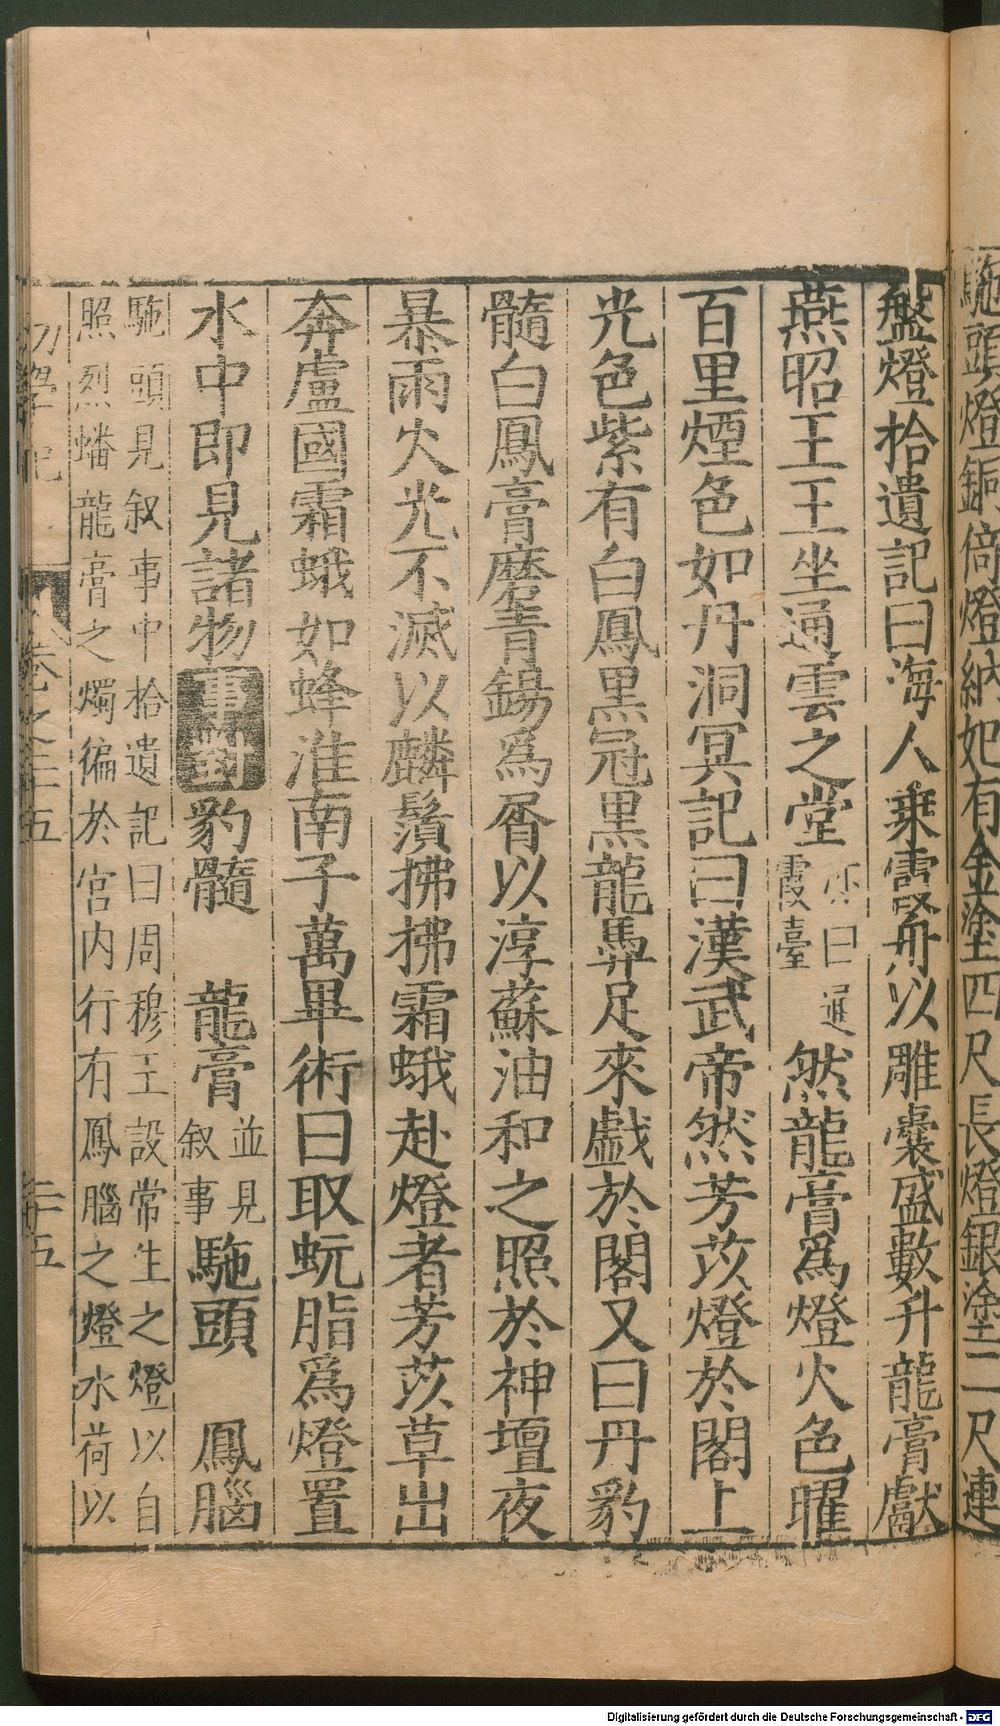 駞頭燈銅倚燈納妃有金塗四尺長燈銀塗二尺連
盤燈拾遺記曰海人乗霻舟以雕囊盛數升龍膏獻
燕昭王王坐通雲之堂亦曰遐霞臺然龍膏爲燈火色曜
百里煙色如丹洞冥記曰漢武帝然芳苡燈於閣上
光色紫有白鳳黒冠黒龍馵足來戲於閣又曰丹豹
髓白鳳膏磨青錫爲屑以淳蘇油和之照於神壇夜
暴雨火光不滅以麟鬚拂拂霜蛾赴燈者芳苡草出
奔盧國霜蛾如蜂淮南子萬畢術曰取蚖脂爲燈置
水中即見諸物事對豹髓 龍膏並見叙事駞頭 鳳腦
駞頭見叙事中拾遺記曰周穆王設常生之燈以自
照烈蟠龍膏之燭徧於宫内行有鳳腦之燈水荷以
初學記 卷之二十五 二十五
Digitalisierung gefördert durch die Deutsche Forschungsgemeinschaft - DFG